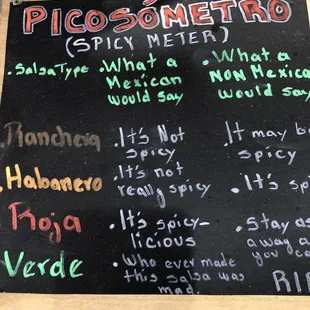 PICOSÓMETRO
(SPICY METER)
. Salsa Type . What a Mexican would say . What a NON Mexica would say
. Ranchera . It's Not spicy It may b spicy
. Habanero . It's not really spicy . It's spi
Roja . It's spicy-licious . Stay as away a you ca
Verde . Who ever made this salsa was mad. RIP